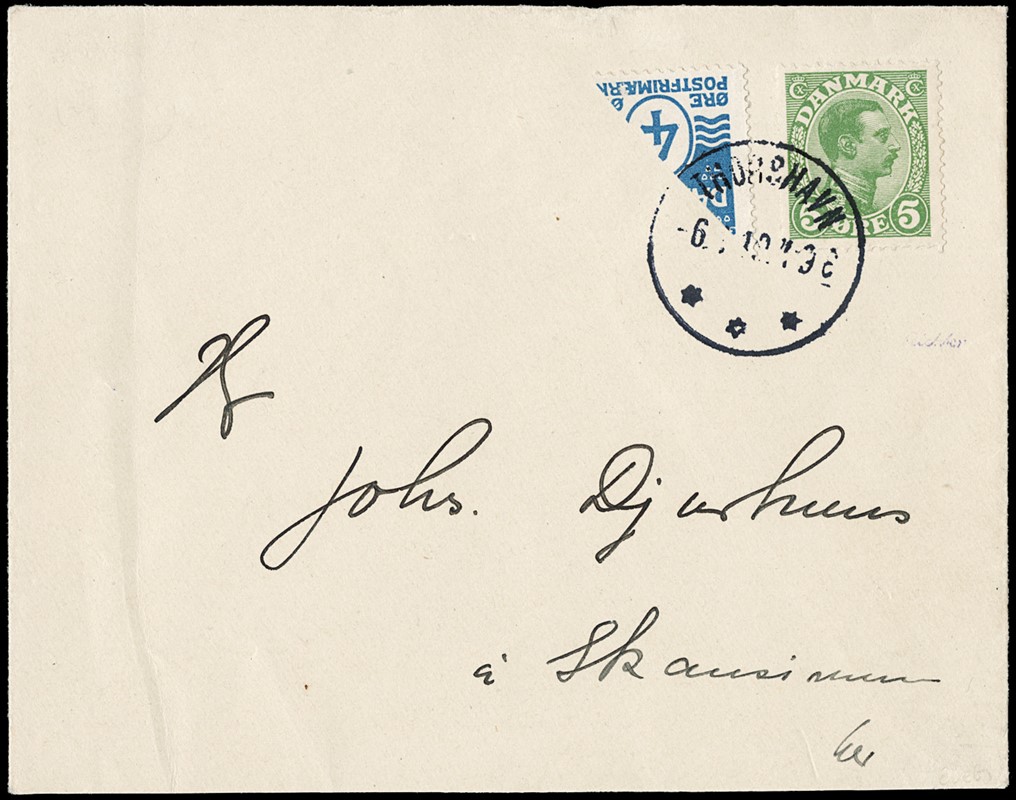 ØRE
POSTFRIMÆRK
4
DANMARK
5 ØRE 5
THORSHAVN
-6. 1. 19. 7-9 E
Hr
Johs. Djurhuus
á Skansanum
her